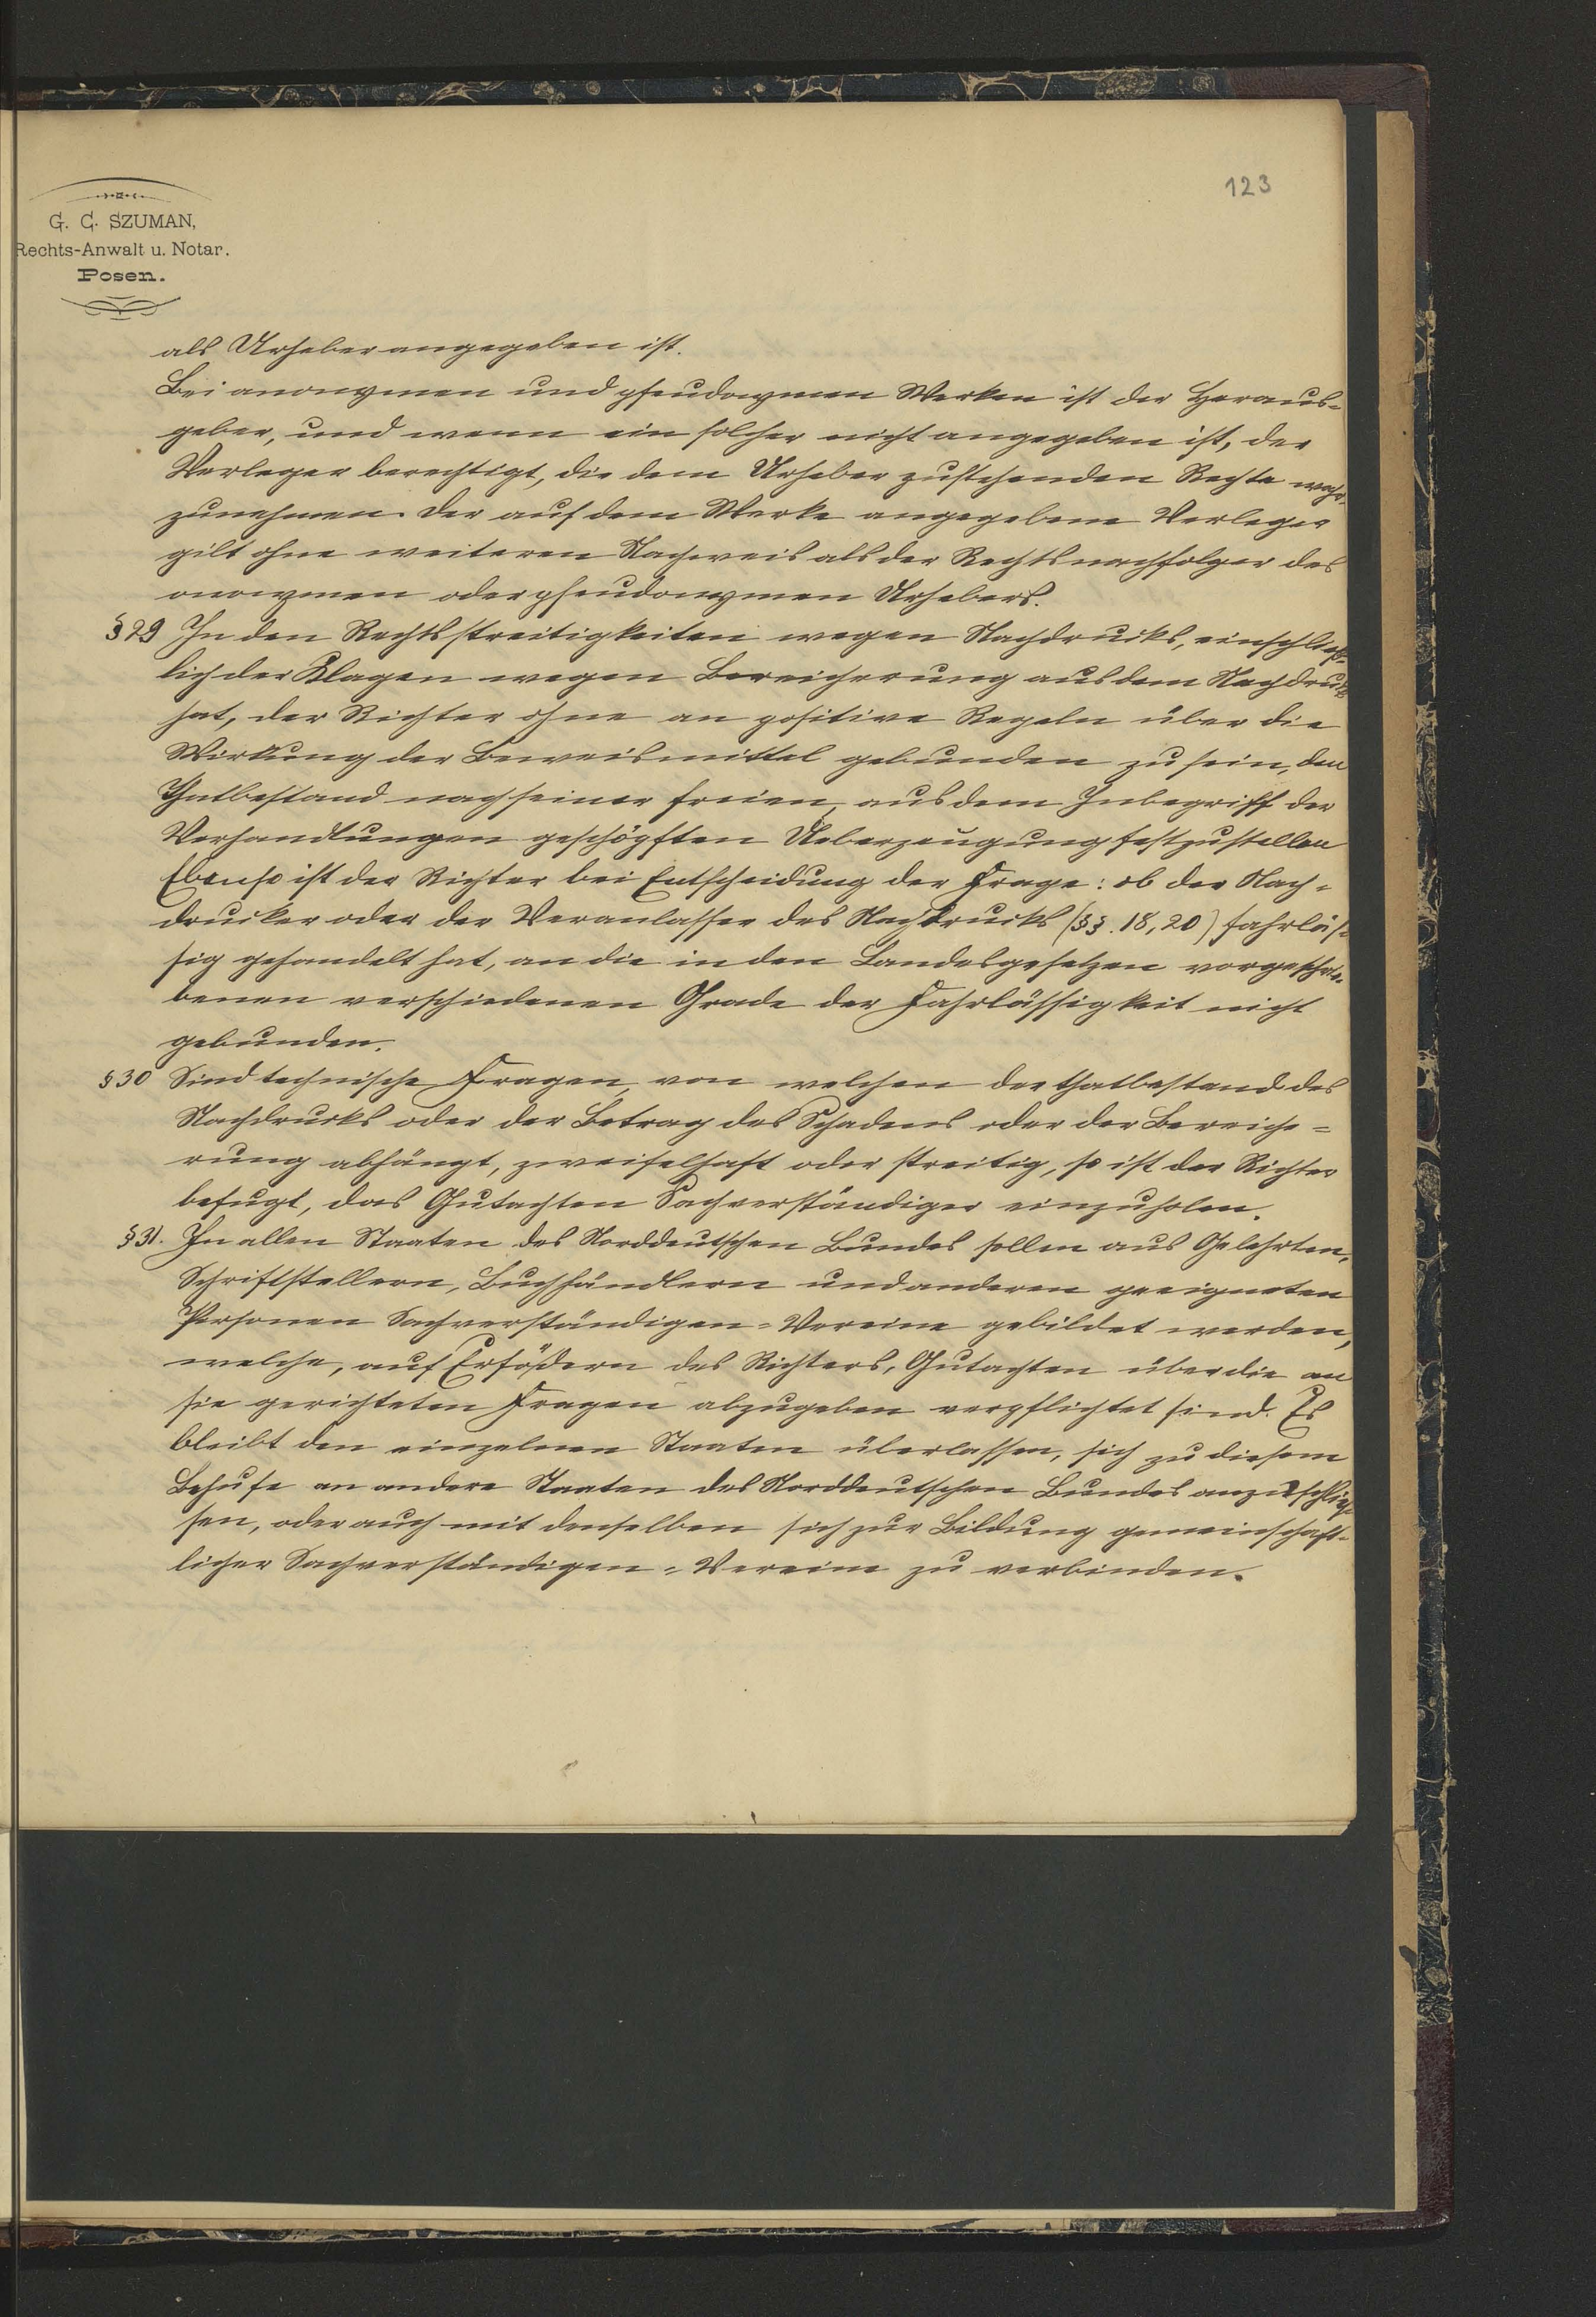 123
G. C. SZUMAN,
Rechts-Anwalt u. Notar.
Posen.
als Urheber angegeben ist.
Bei anonymen und pseudonymen Werken ist der Heraus-
geber, und wenn ein solcher nicht angegeben ist, der
Verleger berechtigt, die dem Urheber zustehenden Rechte wahr-
zunehmen. Der auf dem Werke angegebene Verleger
gilt ohne weiteren Nachweis als der Rechtsnachfolger des
anonymen oder pseudonymen Urhebers.
§ 29 In den Rechtsstreitigkeiten wegen Nachdrucks, einschließ-
lich der Klagen wegen Bereicherung aus dem Nachdruck
hat, der Richter ohne an positive Regeln über die
Wirkung der Beweismittel gebunden zu sein, den
Thatbestand nach seiner freien, aus dem Inbegriff der
Verhandlungen geschöpften Ueberzeugung festzustellen
Ebenso ist der Richter bei Entscheidung der Frage: ob der Nach-
drucker oder der Veranlasser des Nachdrucks (§§. 18, 20) fahrläs-
sig gehandelt hat, an die in den Landesgesetzen vorgeschrie-
benen verschiedenen Grade der Fahrlässigkeit nicht
gebunden.
§ 30 Sind technische Fragen, von welchen der thatbestand des
Nachdrucks oder der Betrag des Schadens oder der Bereiche-
rung abhängt, zweifelhaft oder streitig, so ist der Richter
befugt, das Gutachten Sachverständiger einzuholen.
§ 31. In allen Staaten des Norddeutschen Bundes sollen aus Gelehrten,
Schriftstellern, Buchhändlern und anderen geeigneten
Personen Sachverständigen-Vereine gebildet werden,
welche, auf Erfordern des Richters, Gutachten über die an
sie gerichteten Fragen abzugeben verpflichtet sind. Es
bleibt den einzelnen Staaten überlassen, sich zu diesem
Behufe an andere Staaten des Norddeutschen Bundes anzuschlies-
sen, oder auch mit denselben sich zur Bildung gemeinschaft-
licher Sachverständigen-Vereine zu verbinden.